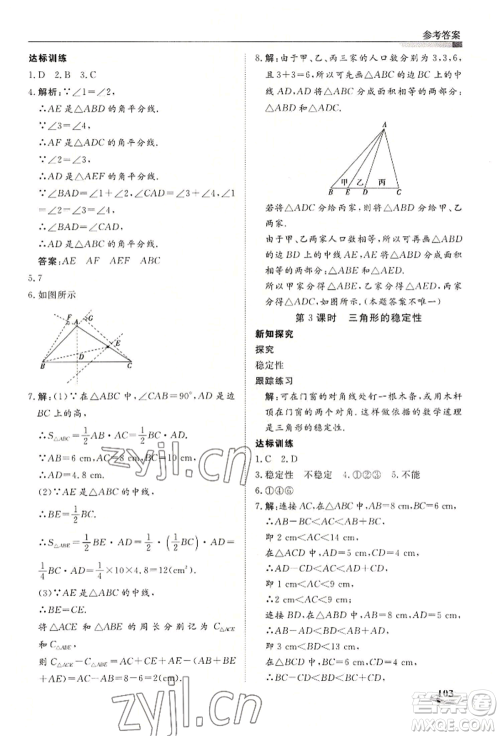 参考答案
达标训练
1. D 2. B 3. C
4. 解析:∵∠1=∠2,
∴AE 是△ABD 的角平分线.
∵∠3=∠4,
∴AF 是△ADC 的角平分线.
∵∠2=∠3,
∴AD 是△AEF 的角平分线.
∵∠BAD=∠1+∠2,∠CAD=∠3+∠4,
∴∠BAD=∠CAD,
∴AD 是△ABC 的角平分线.
答案:AE AF AEF ABC
5. 7
6. 如图所示
F A G
E
B D C
7. 解:(1)∵在△ABC 中,∠CAB=90°,AD 是边
BC 上的高,
∴S△ABC=1/2 AB·AC=1/2 BC·AD.
∵AB=6 cm,AC=8 cm,BC=10 cm,
∴AD=4.8 cm.
(2)∵AE 是△ABC 的中线,
∴BE=1/2 BC,
∴S△ABE=1/2 BE·AD=1/2·(1/2 BC)·AD=
1/4 BC·AD=1/4×10×4.8=12(cm²).
(3)∵AE 是△ABC 的中线,
∴BE=CE.
将△ACE 和△ABE 的周长分别记为 C△ACE 和
C△ABE,
则 C△ACE-C△ABE=AC+CE+AE-(AB+BE+
AE)=AC-AB=8-6=2(cm).
8. 解:由于甲、乙、丙三家的人口数分别为 3,3,6,
且 3+3=6,所以先作△ABC 的中线 AD,如图.
则中线 AD 将△ABC 分成面积相等的两部分,即
S△ABD=S△ACD.
A
甲 乙 丙
B E D C
若将△ADC 给丙家,则可将△ABD 给甲、乙
两家.
由于甲、乙两家人口数相等,故作△ABD 的中
线 AE,将△ABD 分成面积相等的两部分.
所以甲家可分得△ABE,乙家可分得△AED,丙
家可分得△ADC.如图.(答案不唯一)
第 3 课时 三角形的稳定性
新知探究
探究
稳定性
跟踪练习
解:可在门窗的对角线处钉一根木条,或用木杆
顶在门窗的两个对角上,这样做的数学道理
是三角形的稳定性.
达标训练
1. C 2. D
3. 稳定性 不稳定 4. ①②③ 5. 不能
6. ①④⑥
7. 解:连接 AC.∵AB=8 cm,BC=6 cm,
∴AB-BC<AC<AB+BC,
即 2 cm<AC<14 cm.
在△ACD 中,AD=5 cm,CD=4 cm,
∴AD-CD<AC<AD+CD,
即 1 cm<AC<9 cm,
∴2 cm<AC<9 cm.
103
zyjl.cn
zyjl.cn